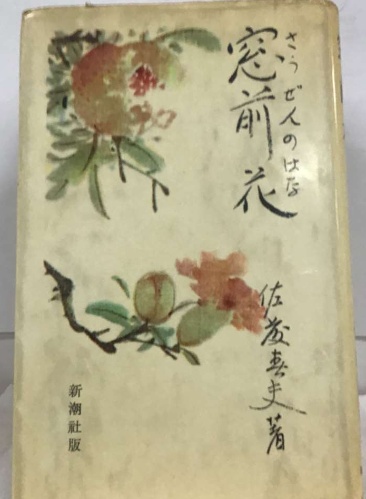 窓前花
さうぜんのはな
佐藤春夫著
新潮社版